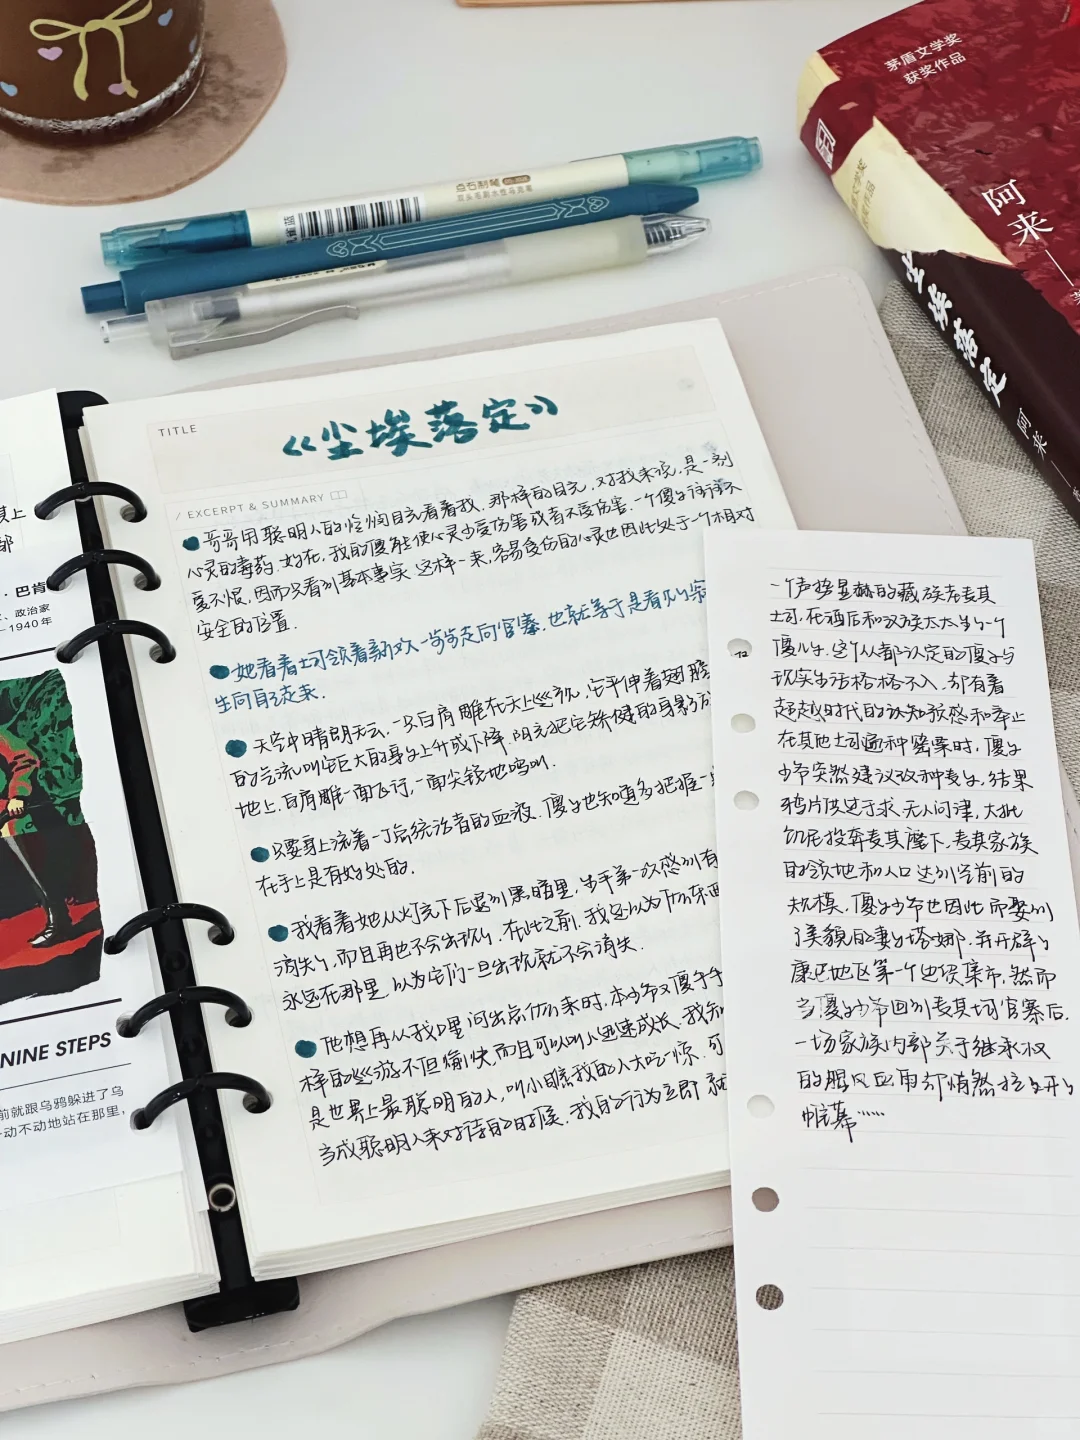 茅盾文学奖
获奖作品
阿来
尘埃落定
阿来
点石制笔
TITLE
《尘埃落定》
/ EXCERPT & SUMMARY
哥哥用聪明人的怜悯目光看着我.那样的目光,对我来说,是一剂
心灵的毒药.好在,我的傻能使心灵少受伤害或者不受伤害.一个傻子往往不
爱不恨,因而只看到基本事实.这样一来,容易受伤的心灵也因此处于一个相对
安全的位置.
她看着土司领着新欢一步步走向官寨.也就等于是看见
生向自己走来.
天空中晴朗无云.一只白肩雕在天上巡视.它平伸着翅膀
的气流叫它巨大的身子上升或下降.阳光把它矫健的身影
地上,白肩雕一面飞行,一面尖锐地鸣叫.
只要身上流着一丁点统治者的血液.傻子也知道多把握一
在手上是有好处的.
我看着她从灯光下后退到黑暗里,生平第一次感到有
消失了,而且再也不会出现了.在此之前.我总以为
永远在那里.以为它们一旦出现就不会消失.
他想再从我口里问出点什么来时.本少爷又傻乎乎
样的巡游不但愉快,而且可以叫人迅速成长.我知
是世界上最聪明的人,叫小瞧我的人大吃一惊.可
当成聪明人来对待的时候.我的行为立即
一个声势显赫的藏族老麦其
土司.在酒后和汉族太太生了一个
傻儿子.这个人人都认定的傻子与
现实生活格格不入.却有着
超越时代的预感和举止
在其他土司遍种罂粟时.傻子
少爷突然建议改种麦子.结果
鸦片供过于求.无人问津,大批
饥民投奔麦其麾下.麦其家族
的领地和人口达到空前的
规模.傻子少爷也因此而娶到
了美貌的妻子塔娜.并开辟了
康巴地区第一个边贸集市.然而
当傻子少爷回到麦其土司官寨后.
一场家族内部关于继承权
的腥风血雨却悄然拉开了
帷幕……
·巴肯
、政治家
-1940年
NINE STEPS
前就跟乌鸦躲进了乌
动不动地站在那里,